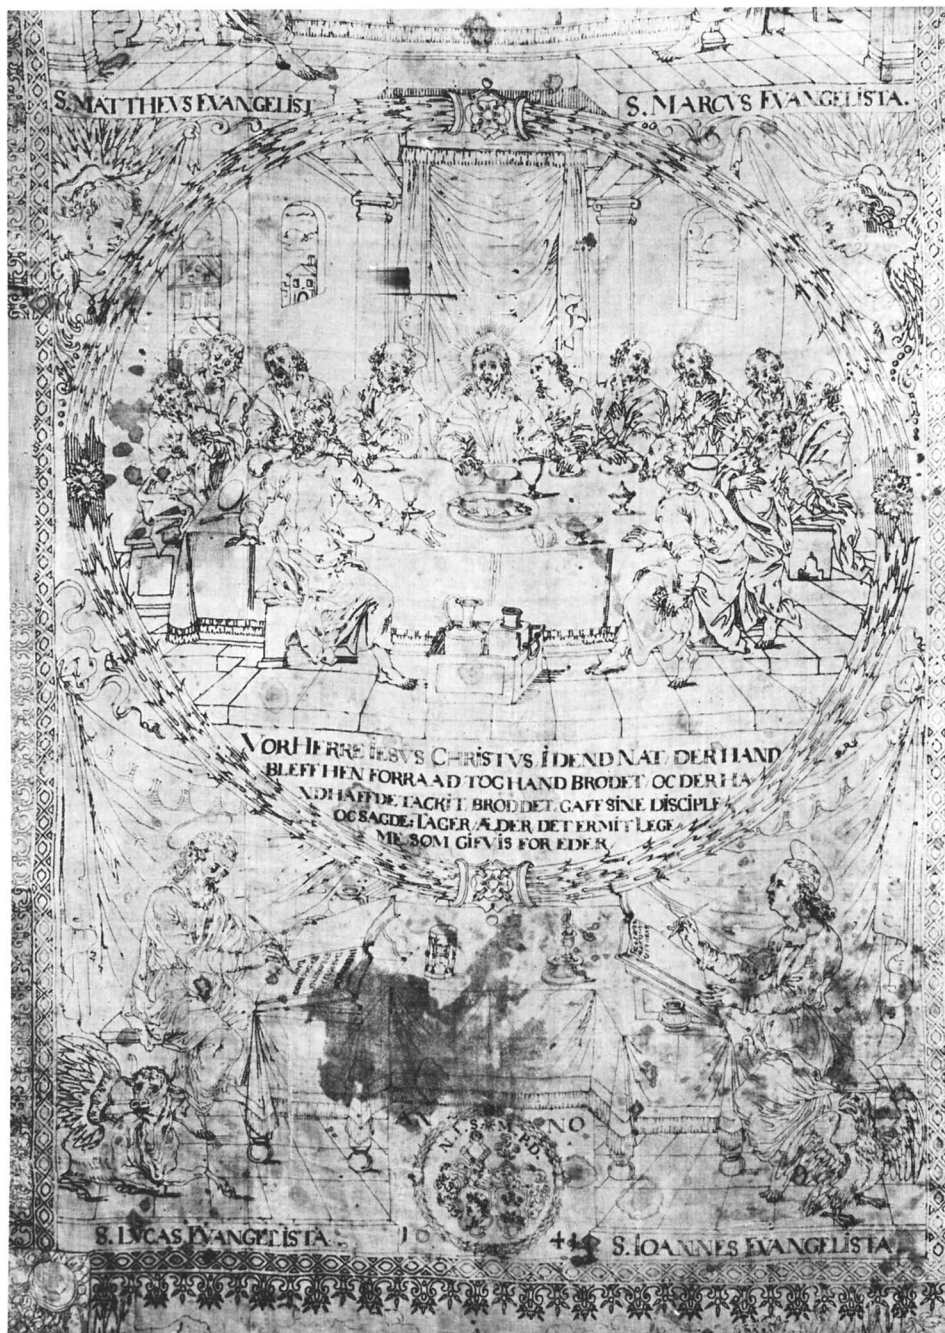 S. MATTHEVS EVANGELIST
S. MARCVS EVANGELISTA.
VORHERRE IESVS CHRISTVS, I DEND NAT DERHAND
BLEFF HEN FORRAAD TOGHAND BRØDET, OC DER HA
NDHAFFDE TACKIT, BRØDDET, GAFF SINE DISCIPLE
OC SAGDE; TAGER ÆDER DET ER MIT LEGE
ME SOM GIFVIS FOR EDER
NO
N.I.S * M P.D.
S. LVCAS EVANGELISTA
S. IOANNES EVANGELISTA